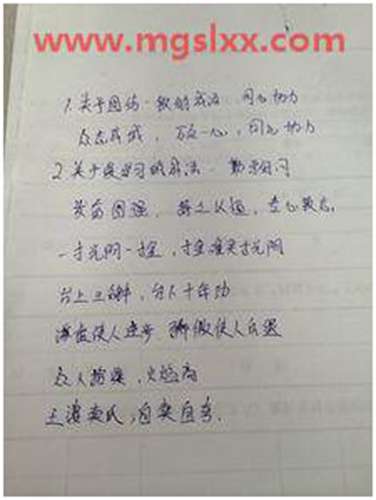 www.mgslxx.com
1.关于团结一致的成语 同心协力
众志成城,万众一心,同心协力
2.关于是学习的成语 勤学好问
发奋图强,持之以恒,专心致志
一寸光阴一寸金,寸金难买寸光阴
台上三分钟,台下十年功
谦虚使人进步 骄傲使人落后
众人拾柴,火焰高
王婆卖瓜,自卖自夸.